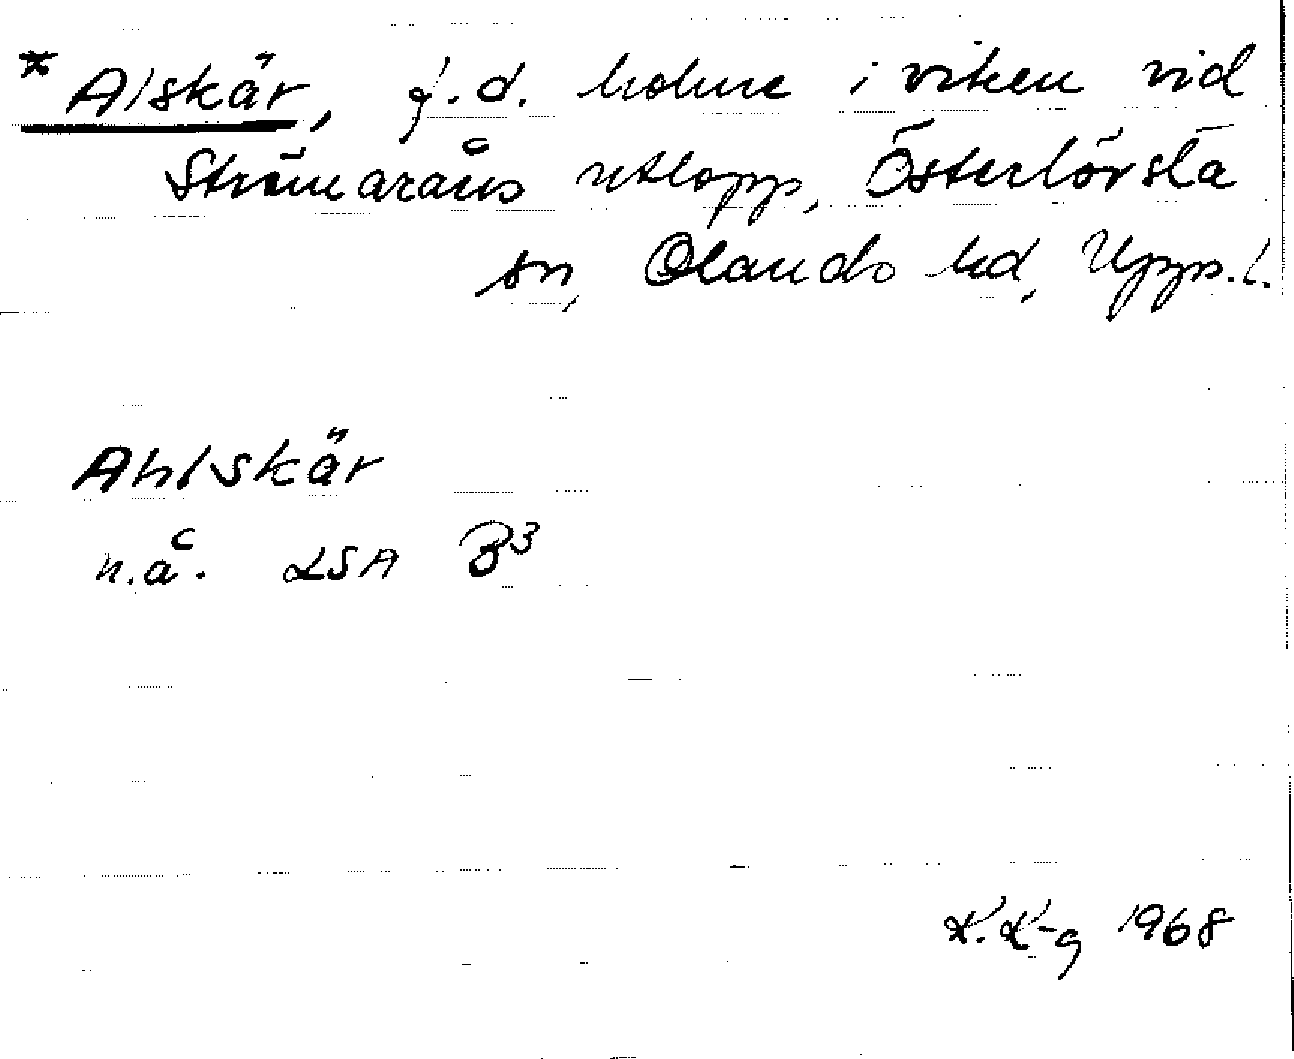 * Alskär, f.d. holme i viken vid
Strömaråns utlopp, Österlövsta
sn, Olands hd, Upps. l.
Ahlskär
n.å. LSA B3
K.K-g 1968